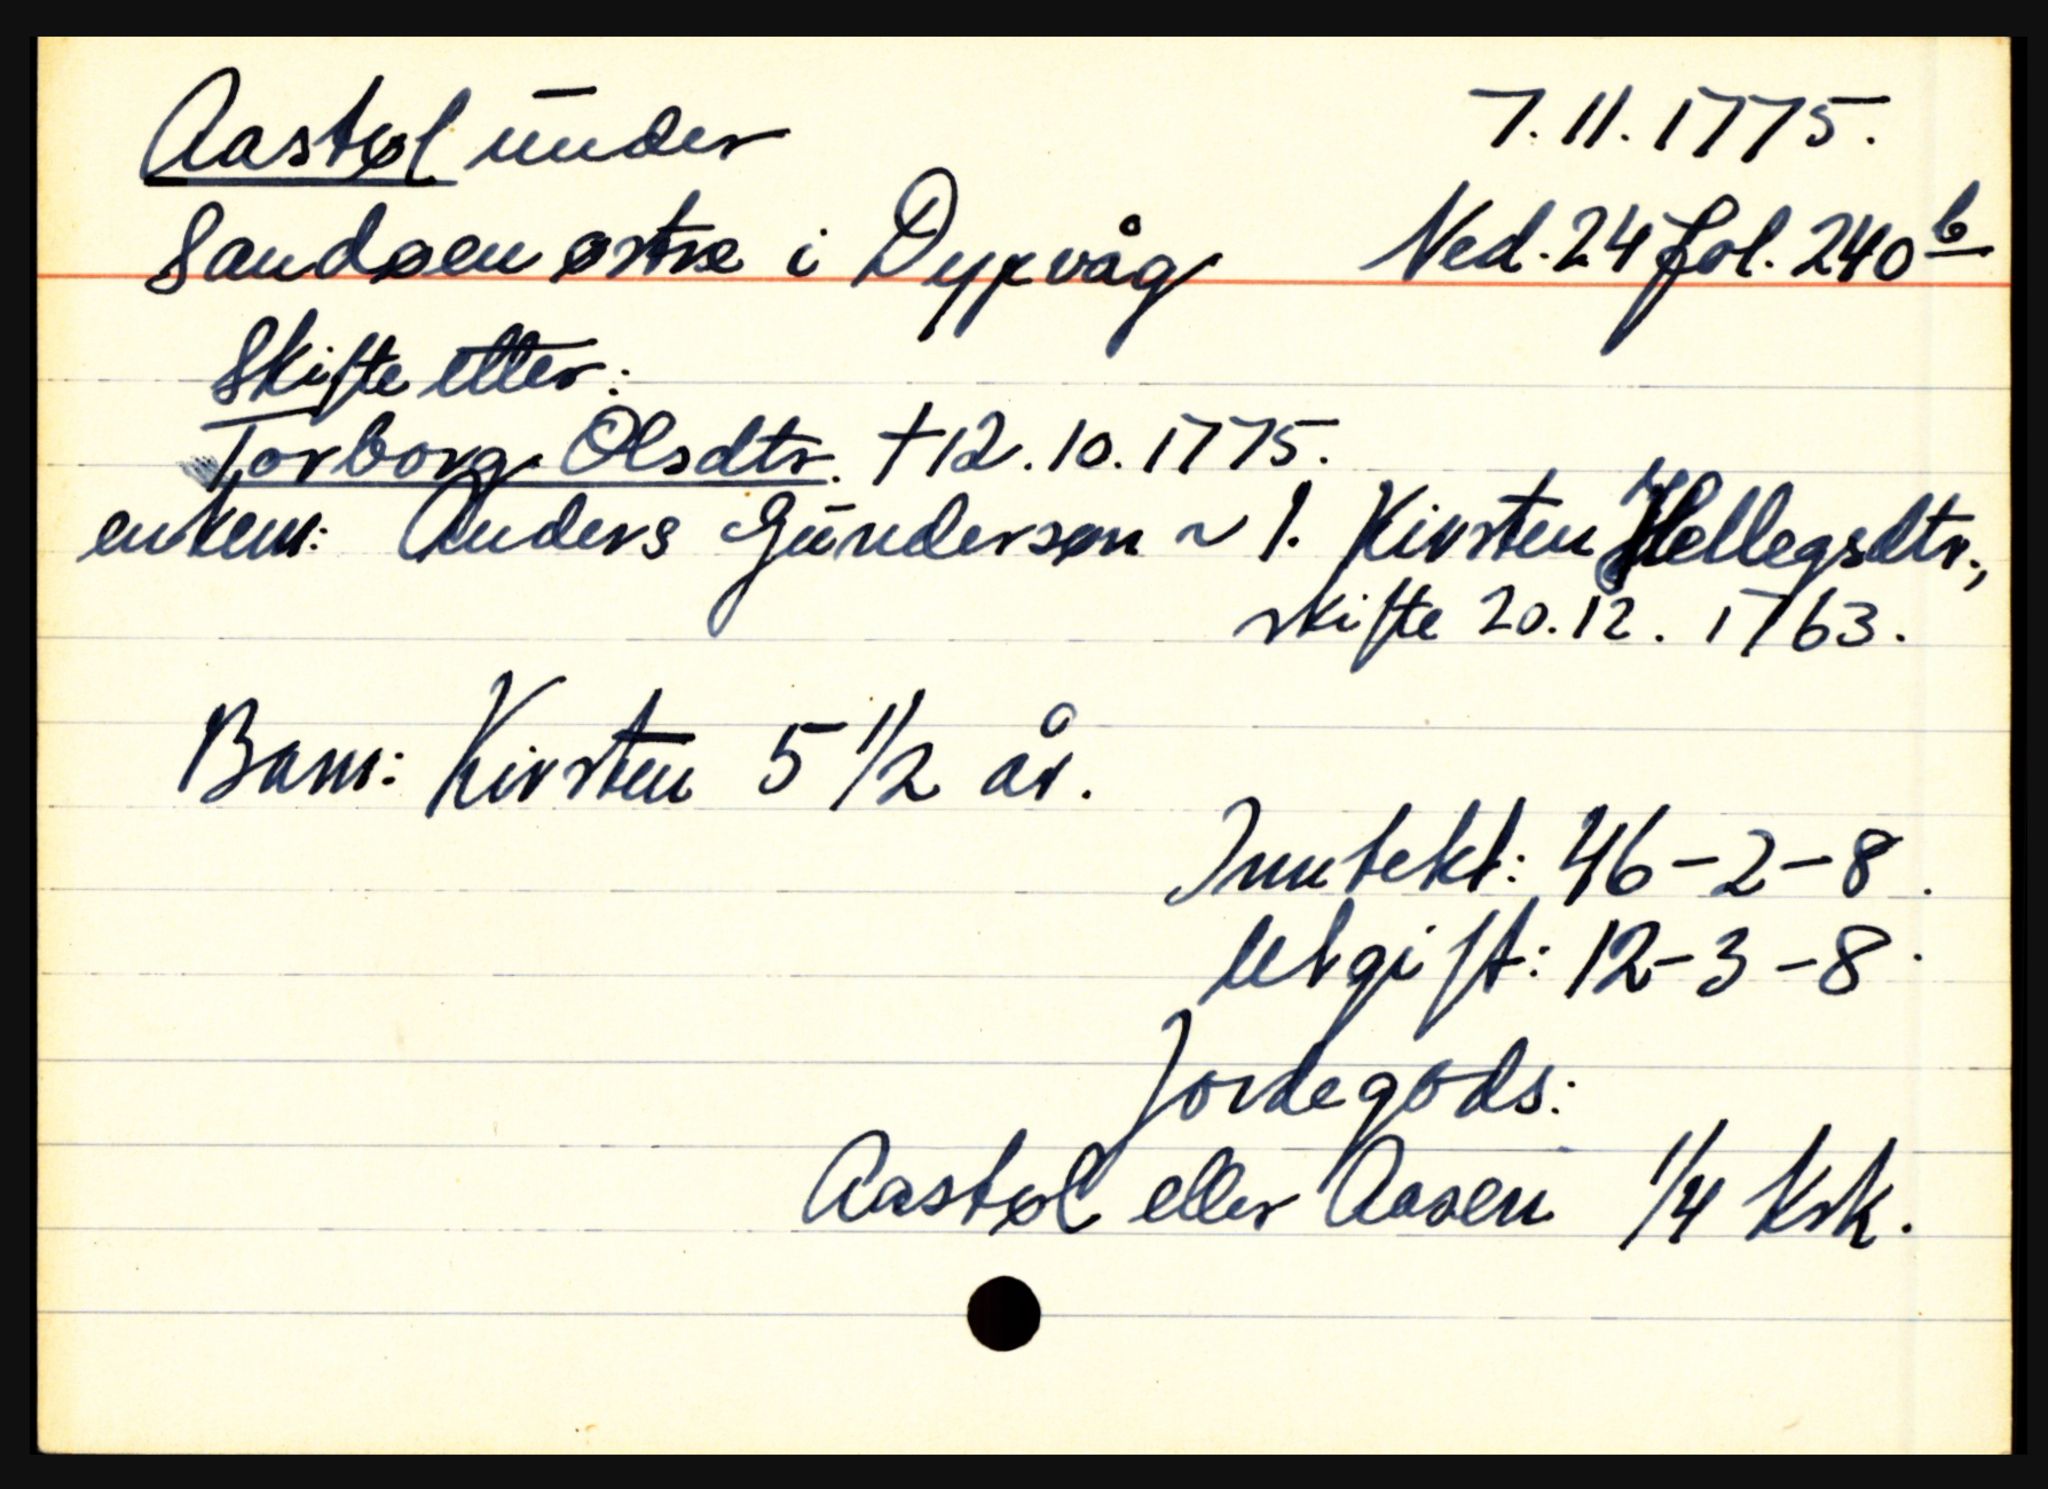 Aastøl under 7.11.1775.
Sandøen østre i Dypvåg Ned. 24 fol. 240 b
Skifte etter:
Torborg Olsdtr. † 12.10.1775.
enkem: Anders Gunderson ~ 1. Kirsten Hellegsdtr.,
skifte 20.12.1763.
Barn: Kirsten 5 1/2 år.
Inntekt: 46-2-8.
Utgift: 12-3-8.
Jordegods:
Aastøl eller Aasen 1/4 ksk.